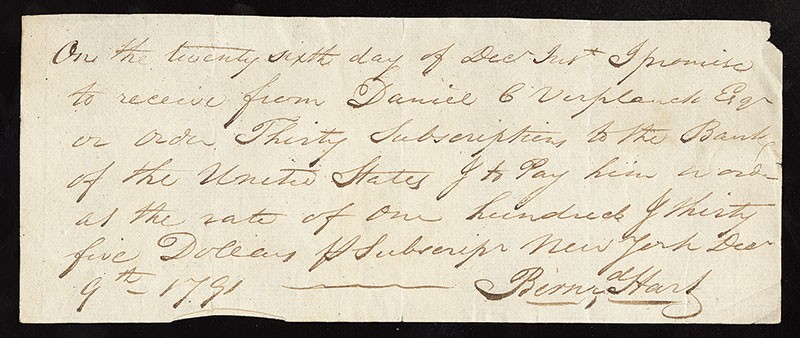 On the twenty sixth day of Decr Inst I promise
to receive from Daniel C Verplanck Esqr
or order Thirty Subscriptions to the Bank
of the United States & to Pay him or order
at the rate of One hundred & thirty
five Dollars ⅌ Subscript New York Decr
9th 1791 Bernrd Hart